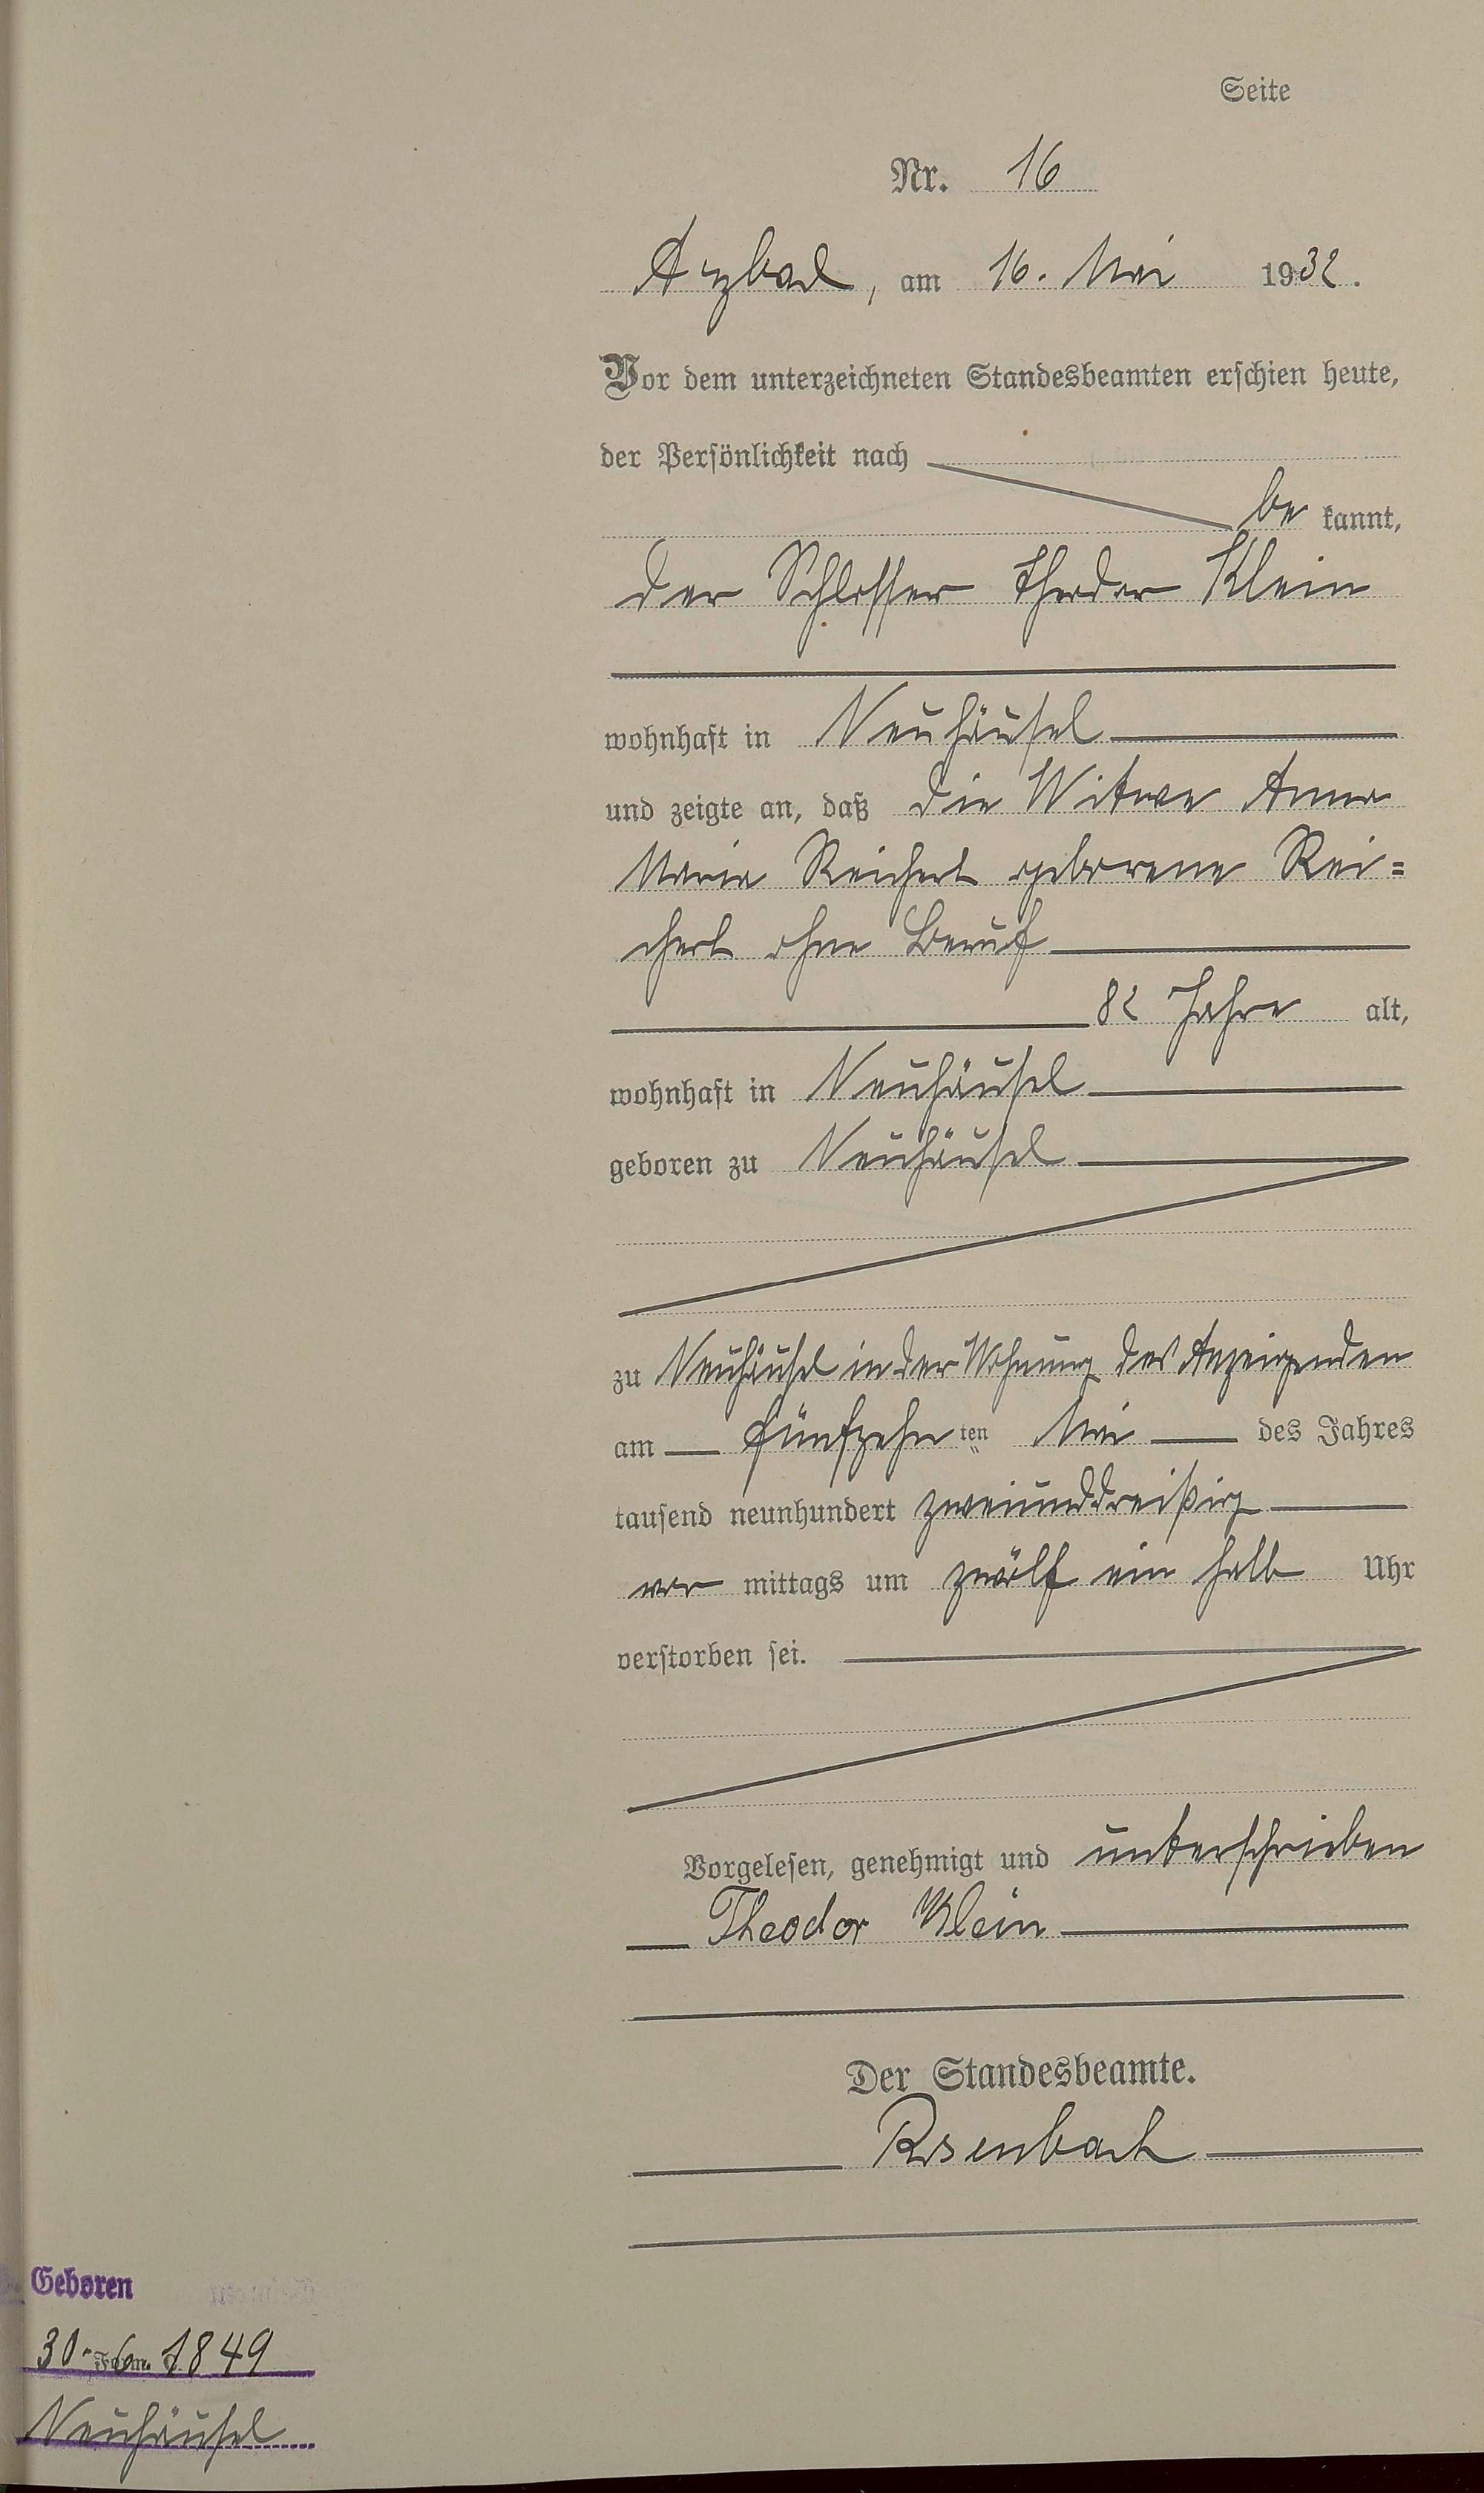 Seite
Nr. 16
Arzbach, am 16. Mai 1932.
Vor dem unterzeichneten Standesbeamten erschien heute,
der Persönlichkeit nach
be kannt,
der Schlosser Theodor Klein
wohnhaft in Neuhäusel
und zeigte an, daß die Witwe Anna
Maria Reichert geborene Rei=
chert ohne Beruf
82 Jahre alt,
wohnhaft in Neuhäusel
geboren zu Neuhäusel
zu Neuhäusel in der Wohnung des Anzeigenden
am fünfzehn ten Mai des Jahres
tausend neunhundert zweiunddreißig
vor mittags um zwölf ein halb Uhr
verstorben sei.
Vorgelesen, genehmigt und unterschrieben
Theodor Klein
Der Standesbeamte.
Rosenbach
Geboren
30. 6. 1849
Neuhäusel